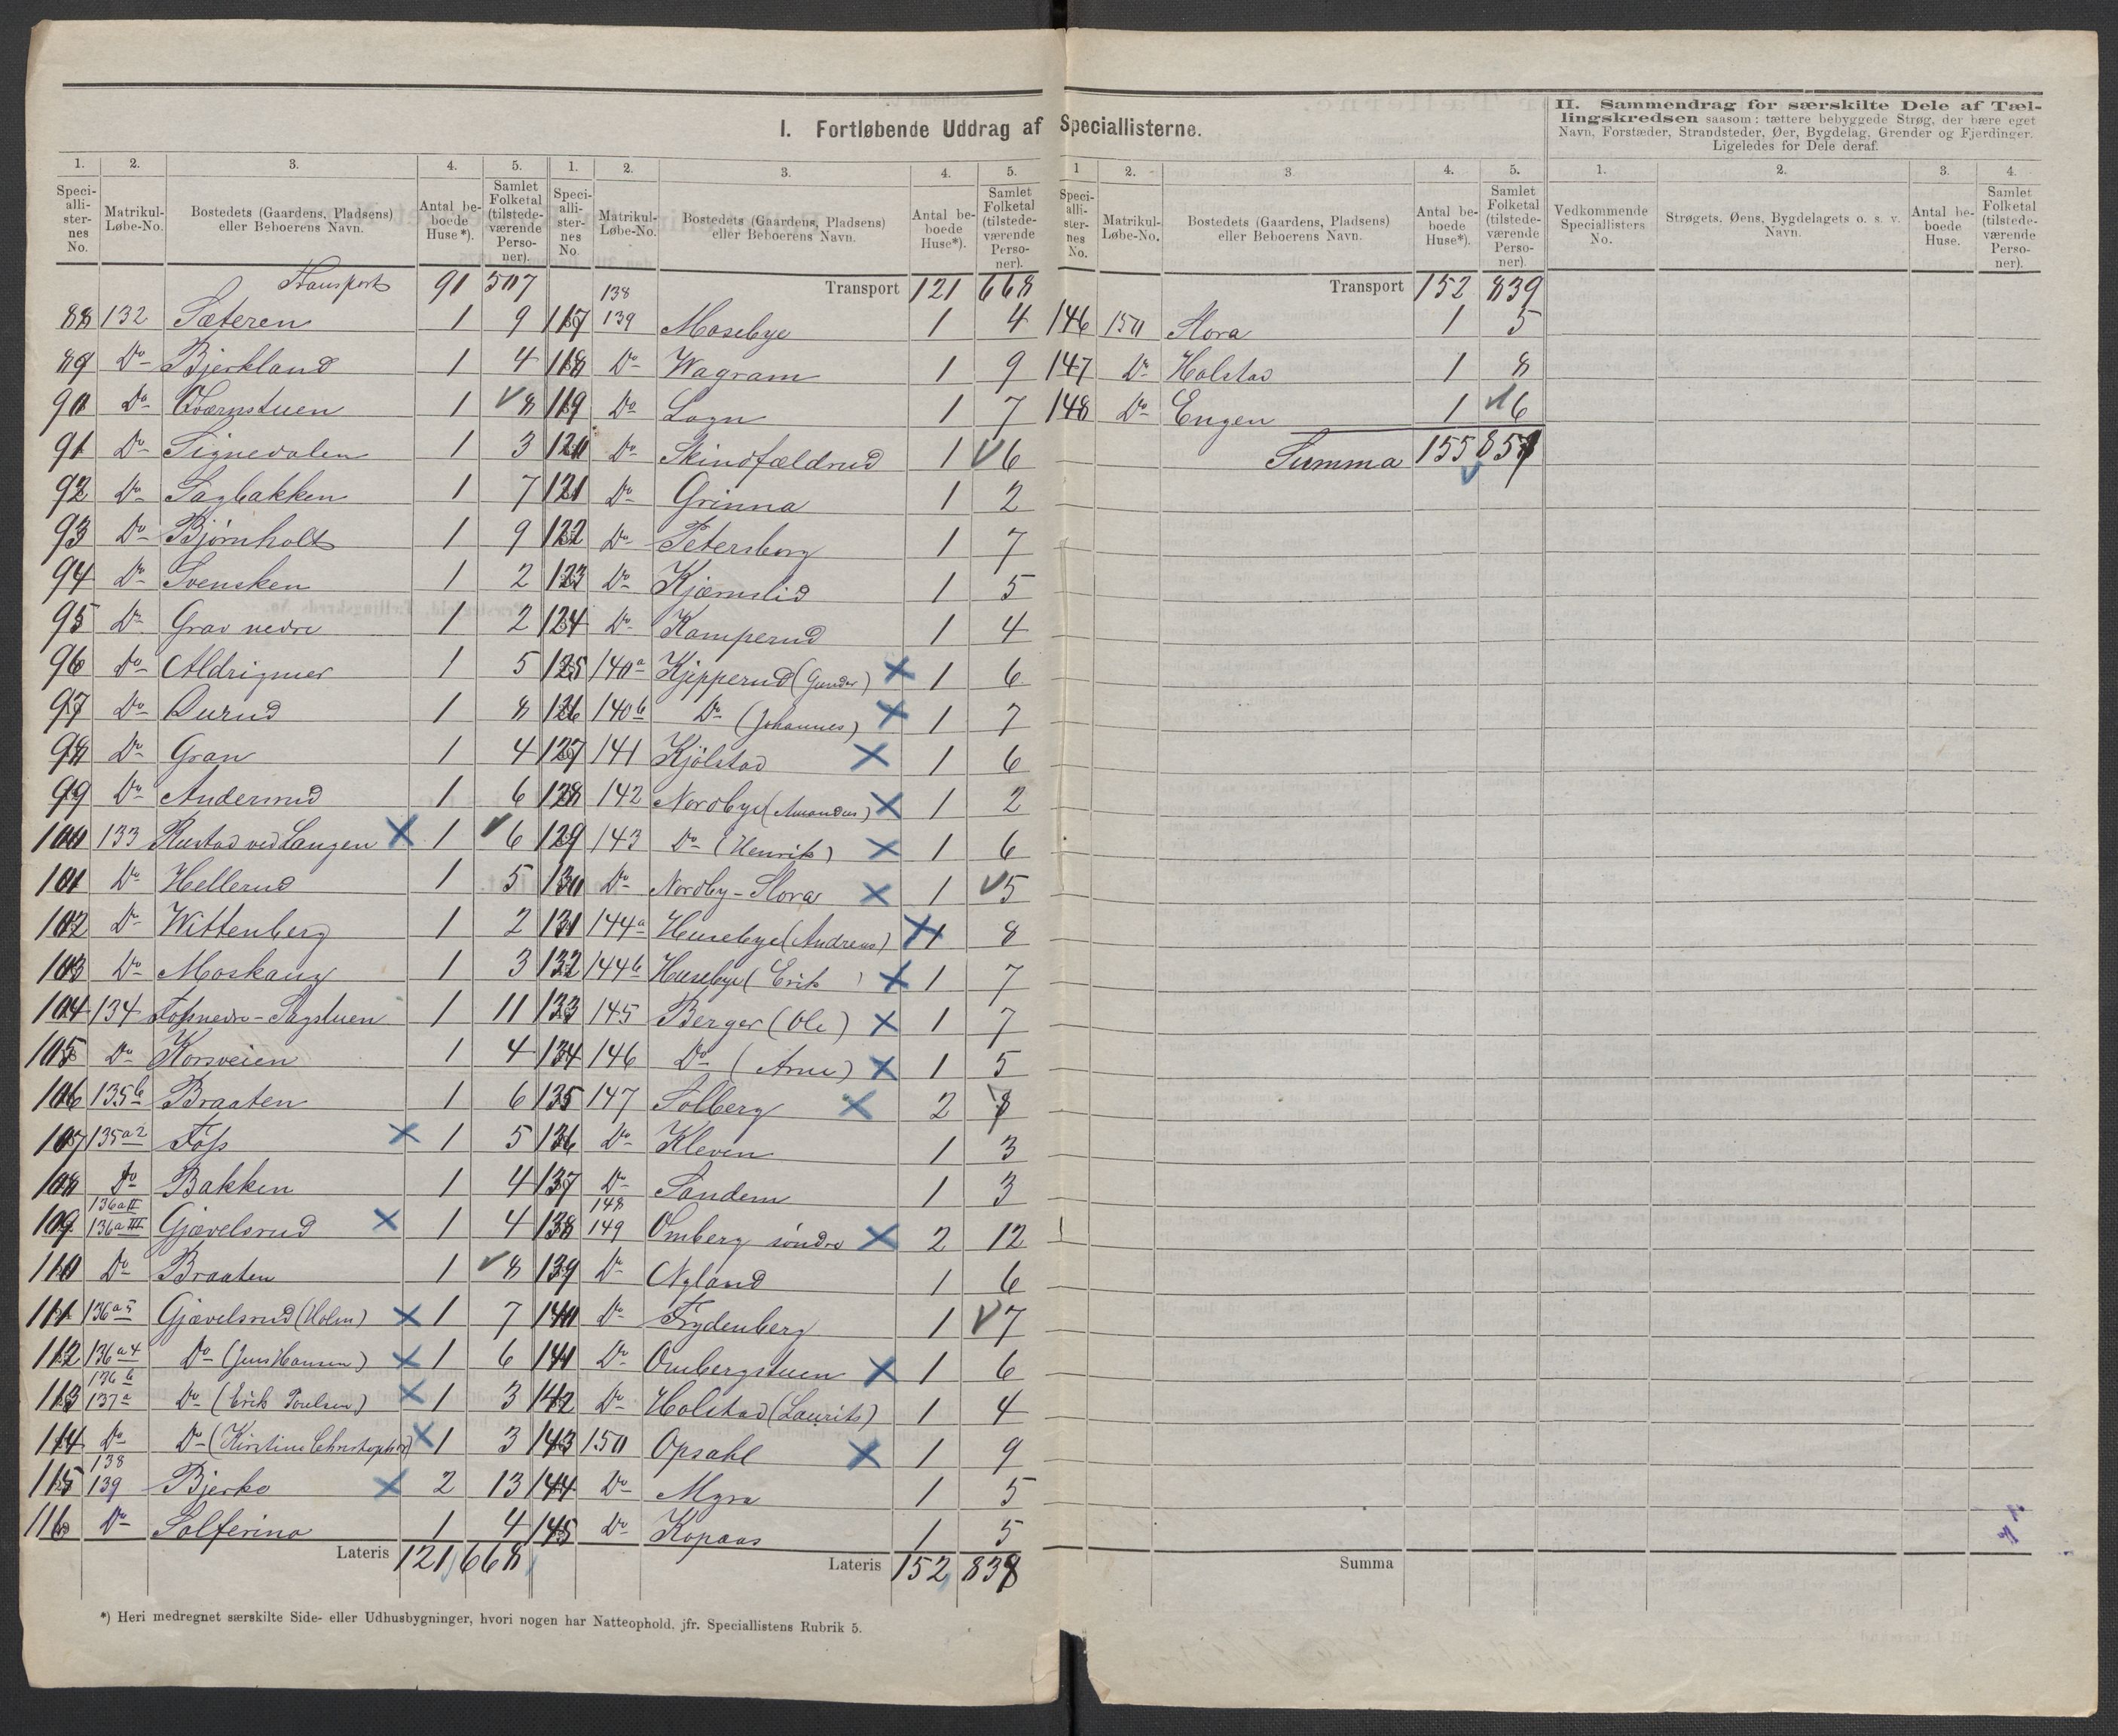 I. Fortløbende Uddrag af Speciallisterne.
1. 2. 3. 4. 5.
Speci-alli-ster-nes No. Matrikul-Løbe-No. Bostedets (Gaardens, Pladsens) eller Beboerens Navn. Antal be-boede Huse*). Samlet Folketal (tilstede-værende Perso-ner).
Transport 91 507
88 132 Sæteren 1 9
89 Do Bjerkland 1 4
90 Do Kværnstuen 1 8
91 Do Signedalen 1 3
92 Do Sagbakken 1 7
93 Do Bjørnholt 1 9
94 Do Svensken 1 2
95 Do Grav nedre 1 2
96 Do Aldrigmer 1 5
97 Do Durud 1 8
98 Do Gran 1 4
99 Do Anderrud 1 6
100 133 Rustad ved Langen X 1 6
101 Do Hellerud 1 5
102 Do Wittenberg 1 2
103 Do Moskaug 1 3
104 134 Fossnedre-Sagstuen 1 11
105 Do Korsveien 1 4
106 135b Braaten 1 6
107 135a2 Foss X 1 5
108 Do Bakken 1 4
109 136aII 136aIII Gjævelsrud X 1 4
110 Do Braaten 1 8
111 136a5 Gjævelsrud (Holm) X 1 7
112 136a4 Do (Jens Hansen) X 1 6
113 136b 137a Do (Erik Poulsen) X 1 3
114 Do Do (Kirstine Christophs) X 1 3
115 138 139 Bjerke X 2 13
116 Do Solferino 1 4
Lateris 121 668
1. 2. 3. 4. 5.
Speci-alli-ster-nes No. Matrikul-Løbe-No. Bostedets (Gaardens, Pladsens) eller Beboerens Navn. Antal be-boede Huse*). Samlet Folketal (tilstede-værende Perso-ner).
Transport 121 668
117 138 139 Mosebye 1 4
118 Do Wagram 1 9
119 Do Logn 1 7
120 Do Skindfældrud 1 6
121 Do Grinna 1 2
122 Do Petersborg 1 7
123 Do Kjærnslid 1 5
124 Do Kamperud 1 4
125 140a Kjepperud (Gunder) X 1 6
126 140b Do (Johannes) X 1 7
127 141 Kjølstad X 1 6
128 142 Nordbye (Amandus) X 1 2
129 143 Do (Henrik) X 1 6
130 Do Nordby-Slora X 1 5
131 144a Husebye (Andreas) X 1 8
132 144b Husebye (Erik) X 1 7
133 145 Berger (Ole) X 1 7
134 146 Do (Arne) X 1 5
135 147 Solberg X 2 8
136 Do Kleven 1 3
137 Do Sandem 1 3
138 148 149 Omberg søndre X 2 12
139 Do Nyland 1 6
140 Do Frydenberg 1 7
141 Do Ombergstuen X 1 6
142 Do Holstad (Laurits) 1 4
143 150 Opsahl X 1 9
144 Do Myra 1 5
145 Do Kopaas 1 5
Lateris 152 839
*) Heri medregnet særskilte Side- eller Udhusbygninger, hvori nogen har Natteophold, jfr. Speciallistens Rubrik 5.
1 2. 3 4. 5.
Speci-alli-ster-nes No. Matrikul-Løbe-No. Bostedets (Gaardens, Pladsens) eller Beboerens Navn. Antal be-boede Huse*). Samlet Folketal (tilstede-værende Perso-ner).
Transport 152 839
146 150 Slora 1 5
147 Do Holstad 1 8
148 Do Engen 1 6
Summa 155 857
Summa
II. Sammendrag for særskilte Dele af Tæl-
lingskredsen saasom: tættere bebyggede Strøg, der bære eget
Navn, Forstæder, Strandsteder, Øer, Bygdelag, Grender og Fjerdinger.
Ligeledes for Dele deraf.
1. 2. 3. 4.
Vedkommende Speciallisters No. Strøgets, Øens, Bygdelagets o. s. v. Navn. Antal be-boede Huse. Samlet Folketal (tilstede-værende Perso-ner).